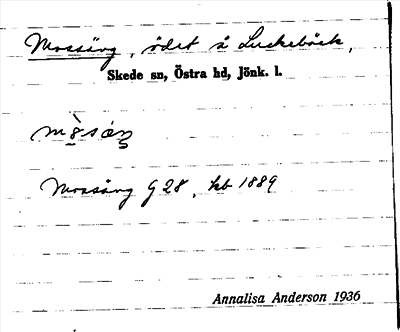 Mossäng, ödet å Luckebäck,
Skede sn, Östra hd, Jönk. l.
Mossäng G 28, hb 1889
Annalisa Anderson 1936